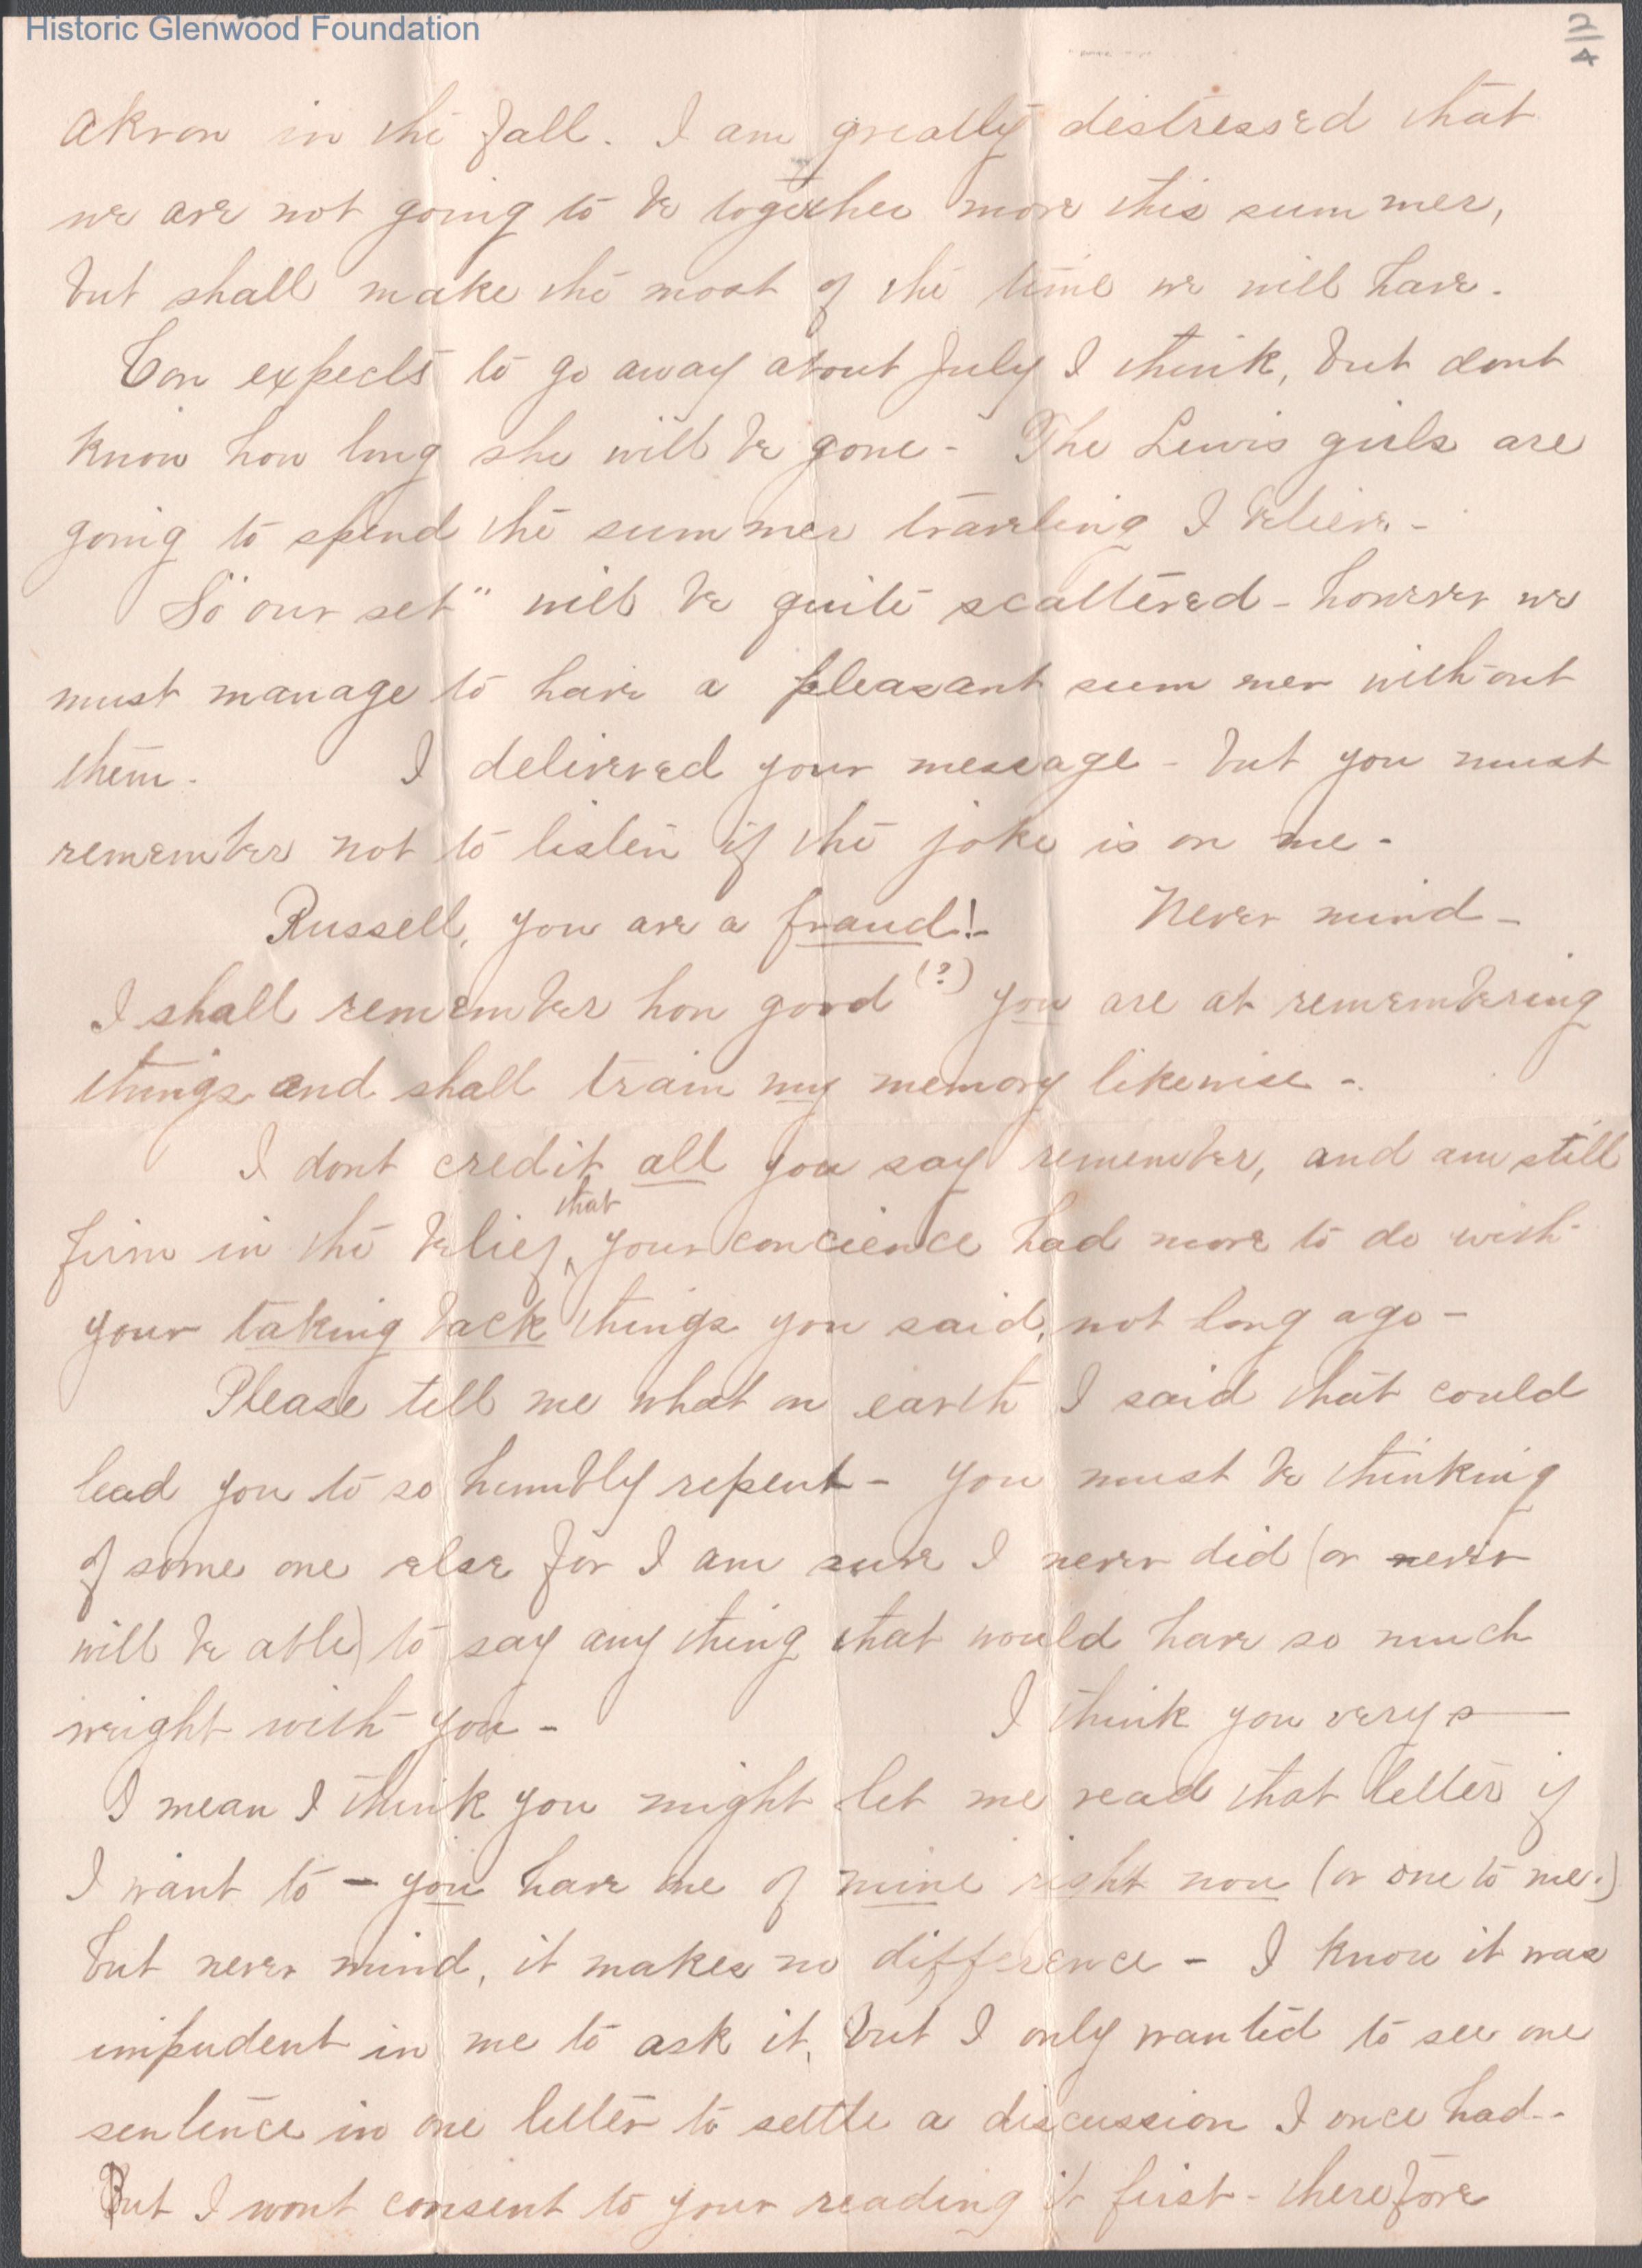 Historic Glenwood Foundation
2/4
Akron in the fall. I am greatly distressed that
we are not going to be together more this summer,
but shall make the most of the time we will have.
Con expects to go away about July I think, but dont
know how long she will be gone - The Lewis girls are
going to spend the summer traveling I believe -
So "our set" will be quite scattered - however we
must manage to have a pleasant summer without
them. I delivered your message - but you must
remember not to listen if the joke is on me -
Russell, you are a fraud! - Never mind -
I shall remember how good (?) you are at remembering
things and shall train my memory likewise -
I dont credit all you say remember, and am still
firm in the belief that your concience had more to do with
your taking back things you said, not long ago -
Please tell me what on earth I said that could
lead you to so humbly repent - you must be thinking
of some one else for I am sure I never did (or never
will be able) to say any thing that would have so much
weight with you - I think you very s——
I mean I think you might let me read that letter if
I want to - you have one of mine right now (or one to me.)
but never mind, it makes no difference - I know it was
impudent in me to ask it, but I only wanted to see one
sentence in one letter to settle a discussion I once had -
But I wont consent to your reading it first - therefore